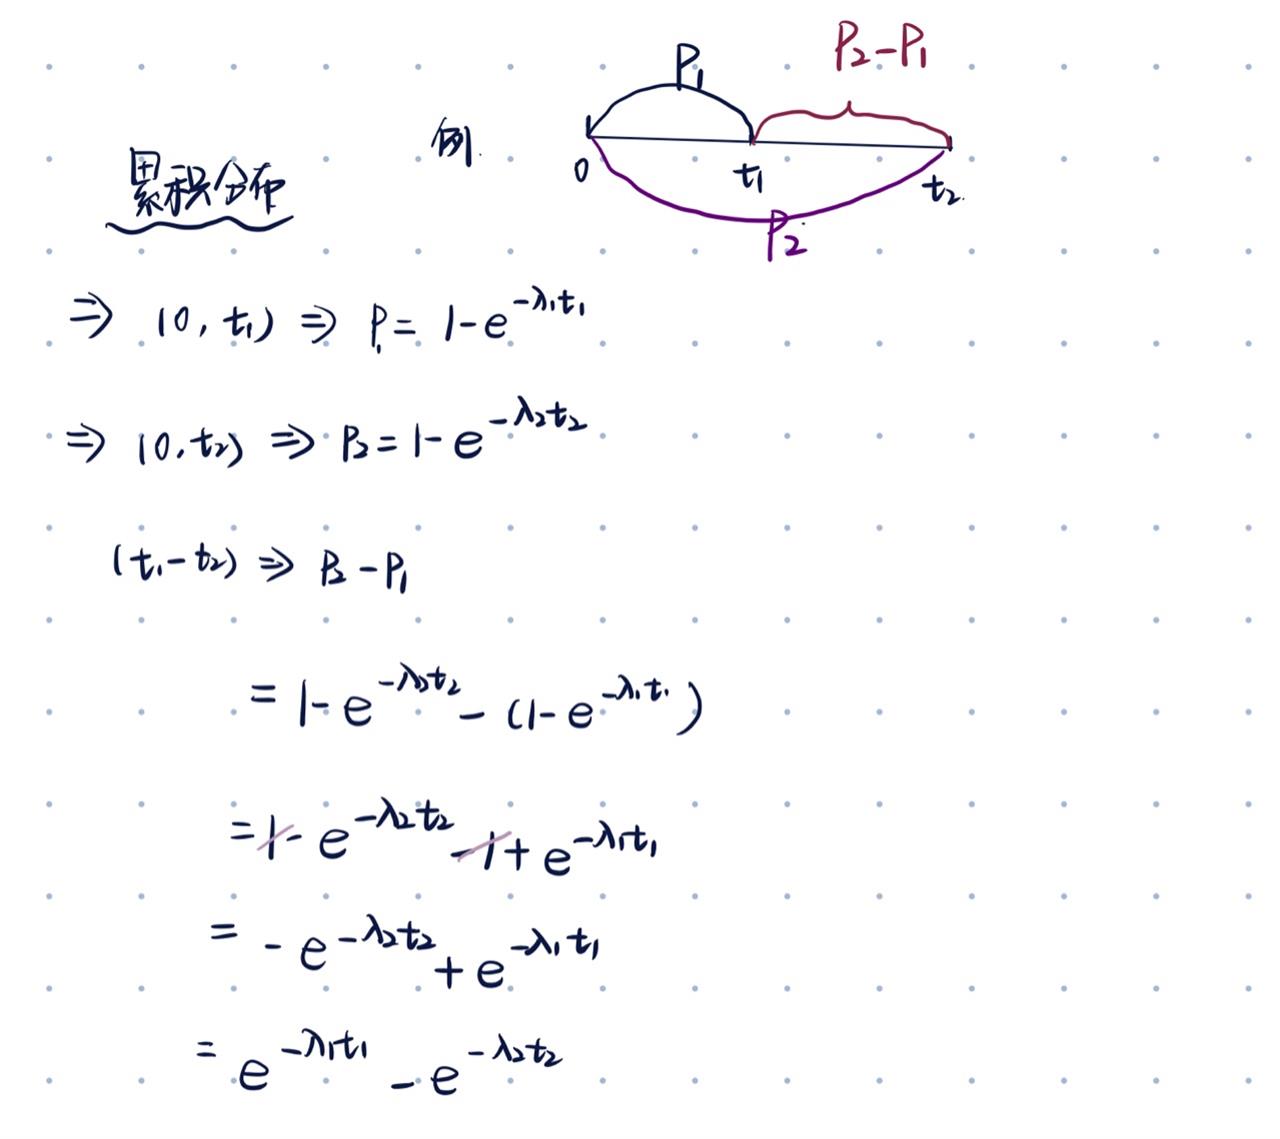 P₂-P₁
P₁
例.
0 t₁ t₂
P₂
累积分布
⇒ (0, t₁) ⇒ P₁ = 1-e^{-λ₁t₁}
⇒ (0, t₂) ⇒ P₂ = 1-e^{-λ₂t₂}
(t₁-t₂) ⇒ P₂-P₁
= 1-e^{-λ₂t₂} - (1-e^{-λ₁t₁})
= 1-e^{-λ₂t₂} -1+e^{-λ₁t₁}
= -e^{-λ₂t₂} + e^{-λ₁t₁}
= e^{-λ₁t₁} - e^{-λ₂t₂}